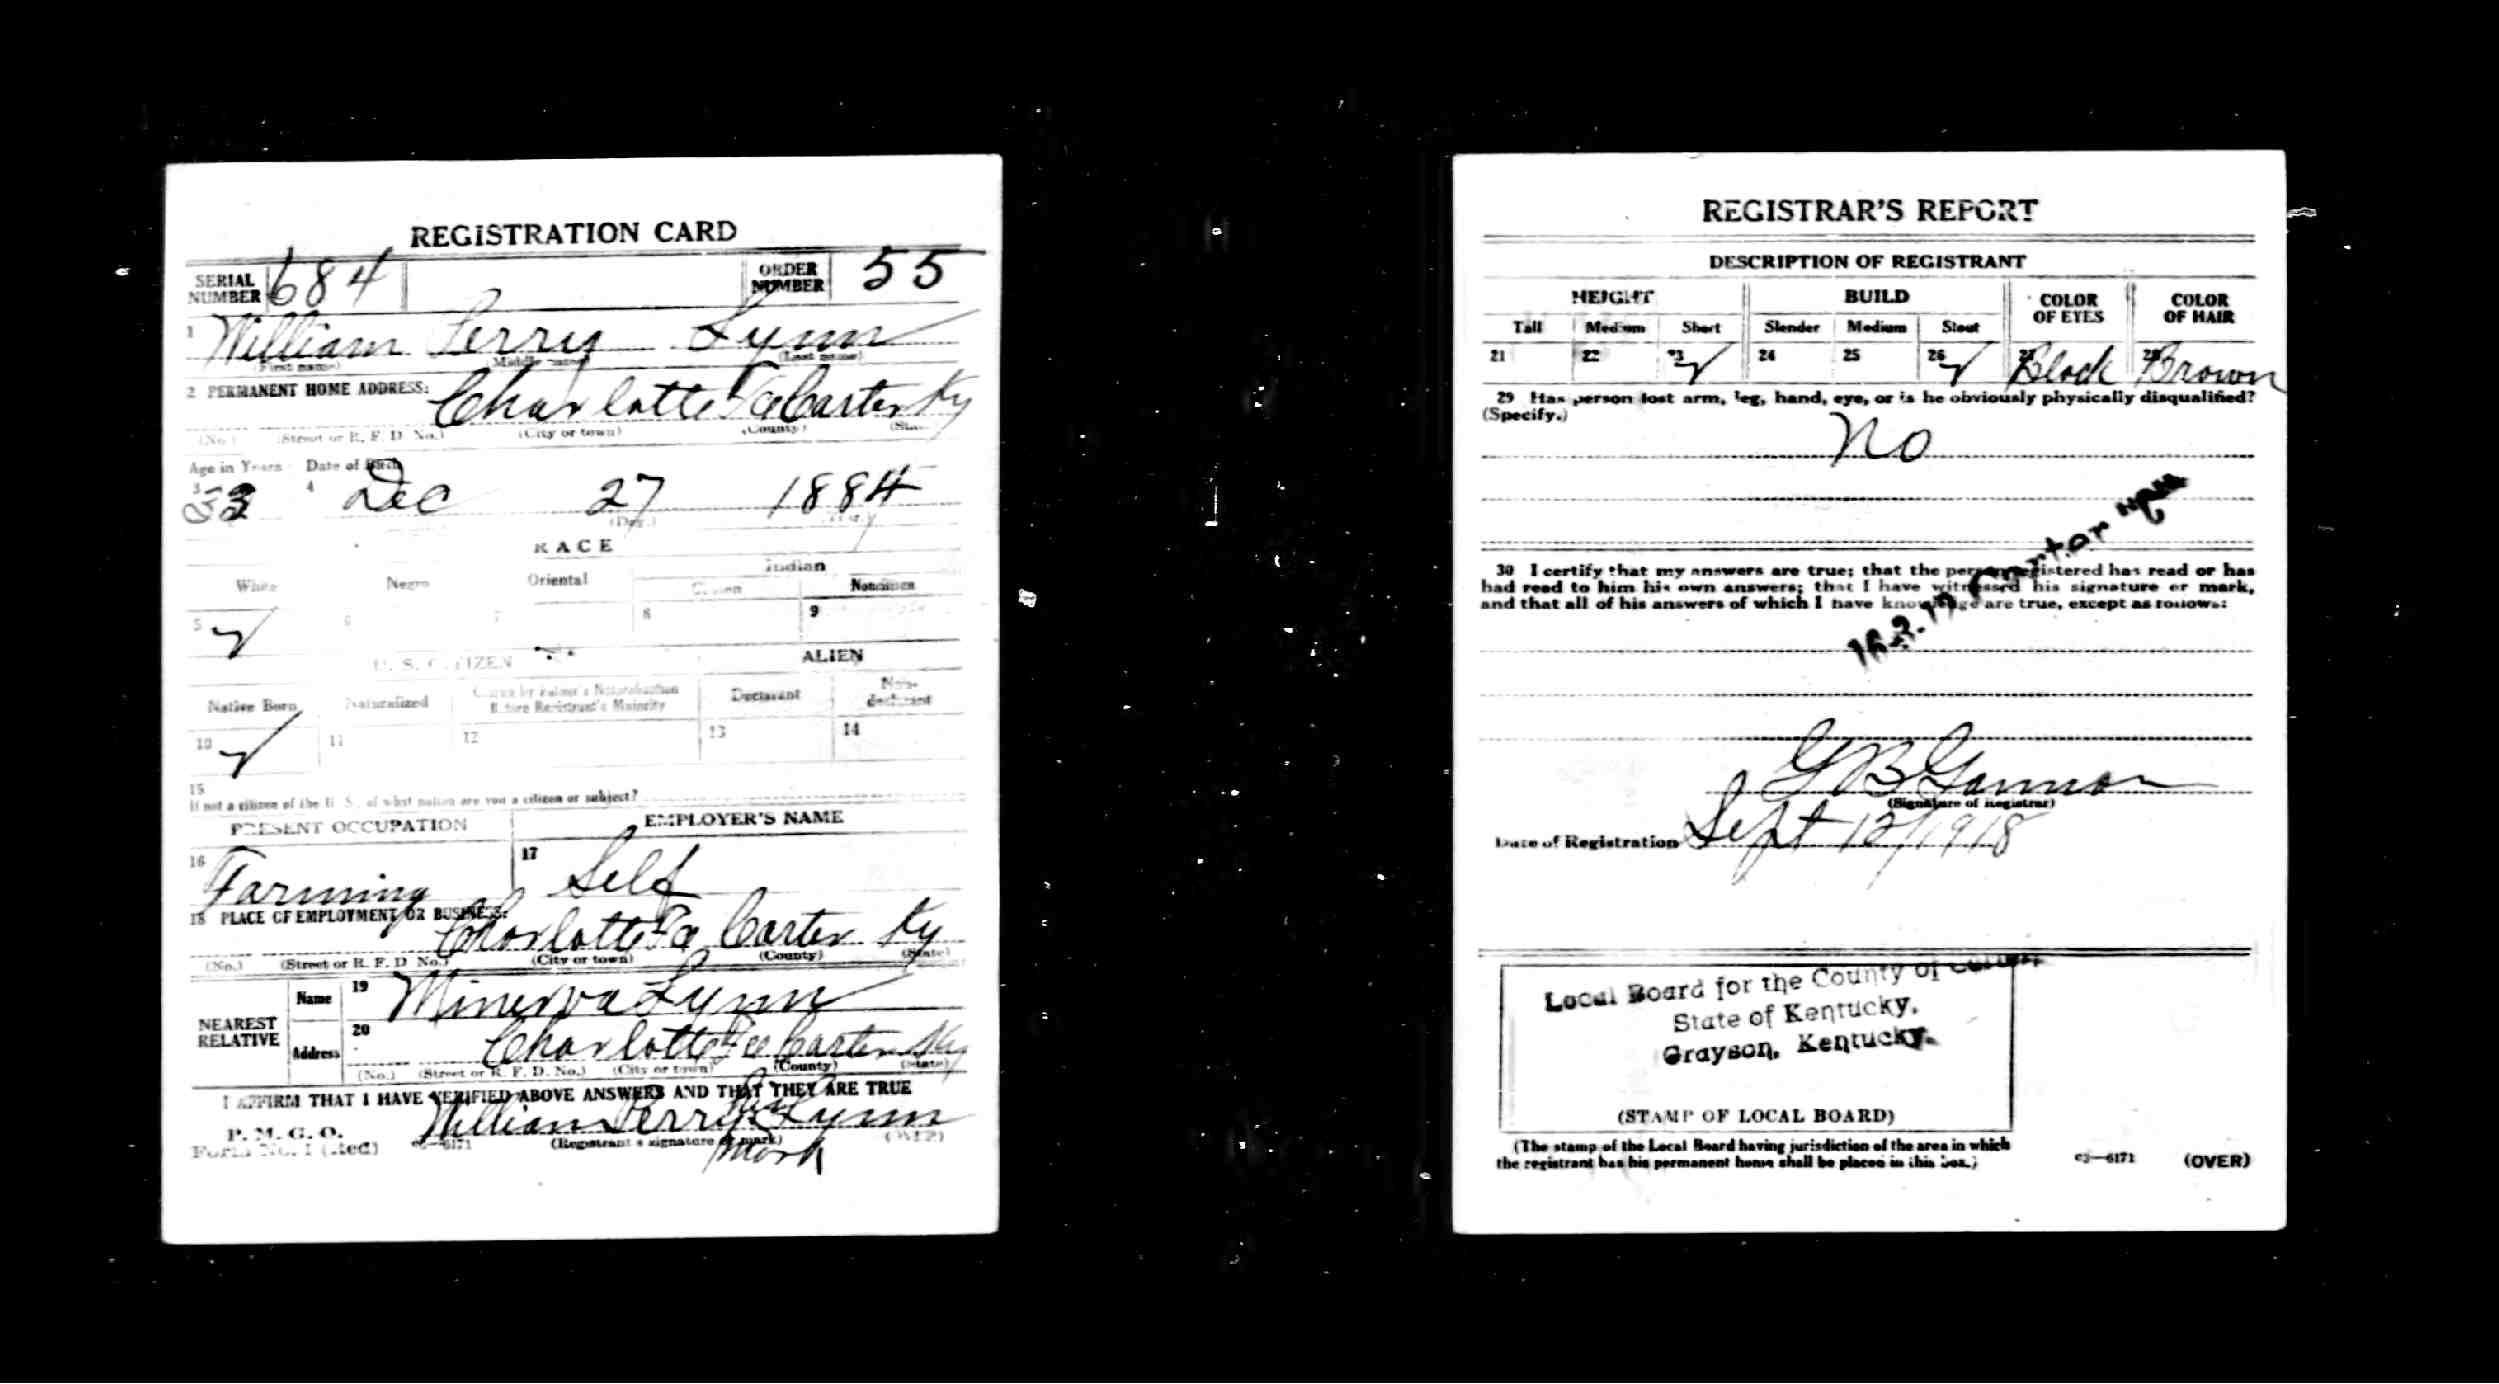 REGISTRATION CARD
SERIAL NUMBER 684 ORDER NUMBER 55
1 William Perry Lynn
(First name) (Middle name) (Last name)
2 PERMANENT HOME ADDRESS: Charlotte Fe Carter Ky
(No.) (Street or R. F. D. No.) (City or town) (County) (State)
Age in Years Date of Birth
3 33 4 Dec 27 1884
(Day.) (Year.)
RACE
White Negro Oriental Indian
Citizen Noncitizen
5 ✓ 6 7 8 9
U. S. CITIZEN ALIEN
Native Born Naturalized Citizen by Father's Naturalization Before Registrant's Majority Declarant Non-declarant
10 ✓ 11 12 13 14
15
If not a citizen of the U. S., of what nation are you a citizen or subject?
PRESENT OCCUPATION EMPLOYER'S NAME
16 Farming 17 Self
18 PLACE OF EMPLOYMENT OR BUSINESS:
Charlotte Fe Carter Ky
(No.) (Street or R. F. D. No.) (City or town) (County) (State)
NEAREST RELATIVE Name 19 Minerva Lynn
Address 20 Charlotte Fe Carter Ky
(No.) (Street or R. F. D. No.) (City or town) (County) (State)
I AFFIRM THAT I HAVE VERIFIED ABOVE ANSWERS AND THAT THEY ARE TRUE
P. M. G. O.
Form No. 1 (Red) William Perry Lynn
(Registrant's signature or mark) (OVER)
mark
REGISTRAR'S REPORT
DESCRIPTION OF REGISTRANT
HEIGHT BUILD COLOR OF EYES COLOR OF HAIR
Tall Medium Short Slender Medium Stout
21 22 23 ✓ 24 25 26 ✓ 27 Black 28 Brown
29 Has person lost arm, leg, hand, eye, or is he obviously physically disqualified?
(Specify.)
No
30 I certify that my answers are true; that the person registered has read or has
had read to him his own answers; that I have witnessed his signature or mark,
and that all of his answers of which I have knowledge are true, except as follows:
G B Gannon
(Signature of Registrar)
Date of Registration Sept 12/1918
Local Board for the County of Carter
State of Kentucky,
Grayson, Kentucky.
(STAMP OF LOCAL BOARD)
(The stamp of the Local Board having jurisdiction of the area in which
the registrant has his permanent home shall be placed in this box.)
03—6171 (OVER)